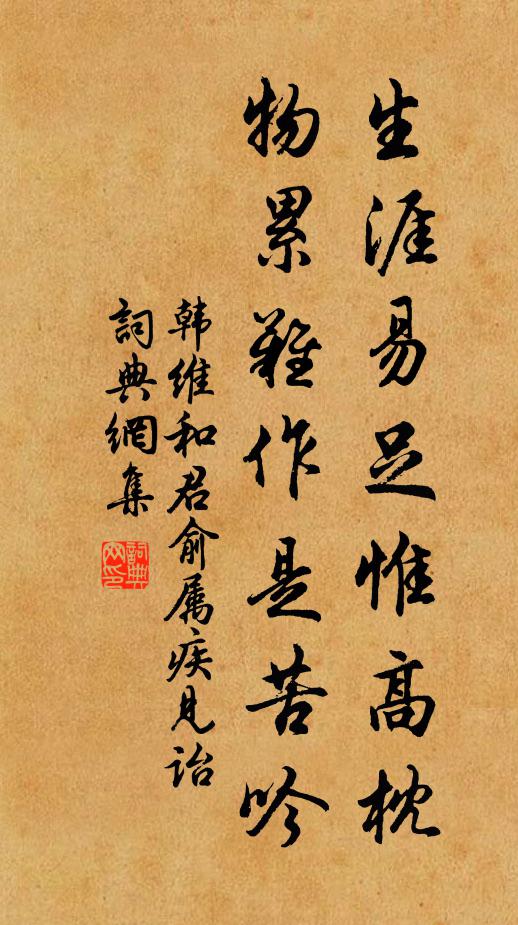 生涯易足惟高枕
物累难作是苦吟
韩维和君俞属疾见诒
詞典網集
詞典网印